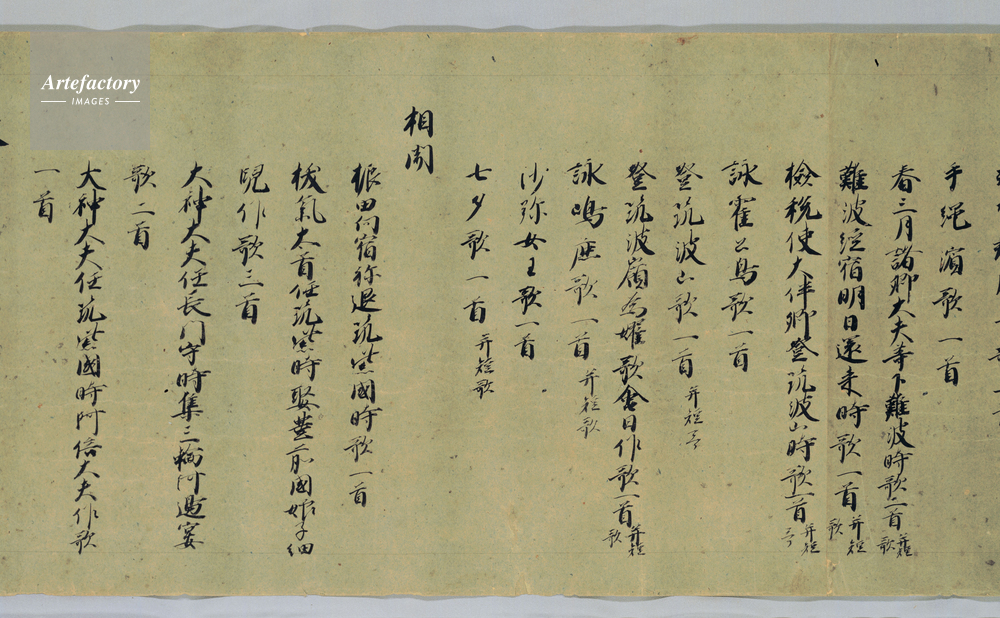 手綱濱歌一首
春三月諸卿大夫等下難波時歌二首并短歌
難波経宿明日還来時歌一首并短歌
檢税使大伴卿登筑波山時歌一首并短哥
詠霍公鳥歌一首
登筑波山歌一首并短哥
登筑波嶺為嬥歌會日作歌一首并短歌
詠鳴鹿歌一首并短歌
沙弥女王歌一首
七夕歌一首并短歌
相聞
振田向宿祢退筑紫國時歌一首
抜氣大首任筑紫時娶豊前國娘子紐
兒作歌三首
大神大夫任長門守時集三輪河邊宴
歌二首
大神大夫任筑紫國時阿倍大夫作歌
一首
Artefactory
IMAGES